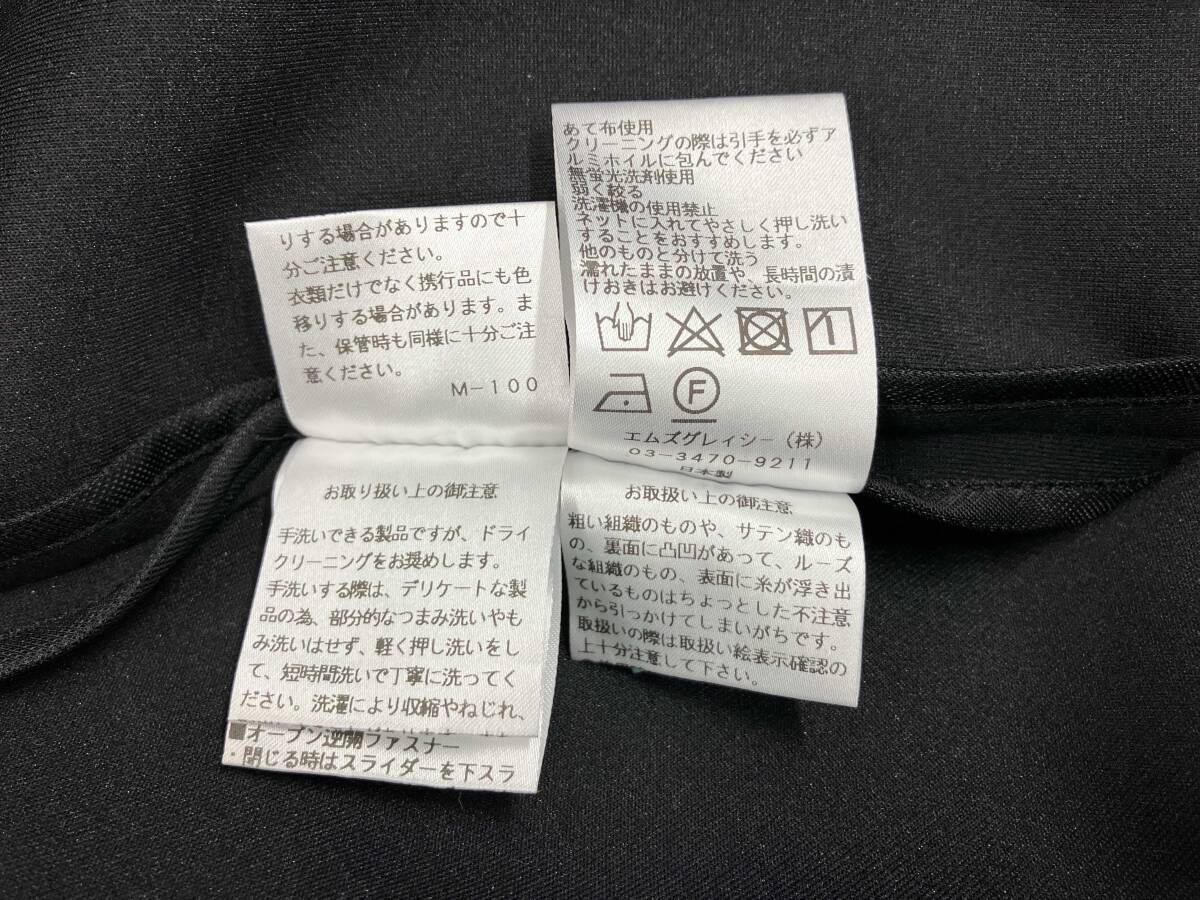 あて布使用
クリーニングの際は引手を必ずア
ルミホイルに包んでください
無蛍光洗剤使用
弱く絞る
洗濯機の使用禁止
ネットに入れてやさしく押し洗い
することをおすすめします。
他のものと分けて洗う
濡れたままの放置や、長時間の漬
けおきはお避けください。
F
エムズグレィシー(株)
03-3470-9211
日本製
りする場合がありますので十
分ご注意ください。
衣類だけでなく携行品にも色
移りする場合があります。ま
た、保管時も同様に十分ご注
意ください。
M-100
お取り扱い上の御注意
手洗いできる製品ですが、ドライ
クリーニングをお奨めします。
手洗いする際は、デリケートな製
品の為、部分的なつまみ洗いやも
み洗いはせず、軽く押し洗いをし
て、短時間洗いで丁寧に洗ってく
ださい。洗濯により収縮やねじれ、
■オープン逆開ファスナー
・閉じる時はスライダーを下スラ
お取扱い上の御注意
粗い組織のものや、サテン織のも
の、裏面に凸凹があって、ルーズ
な組織のもの、表面に糸が浮き出
ているものはちょっとした不注意
から引っかけてしまいがちです。
取扱いの際は取扱い絵表示確認の
上十分注意して下さい。